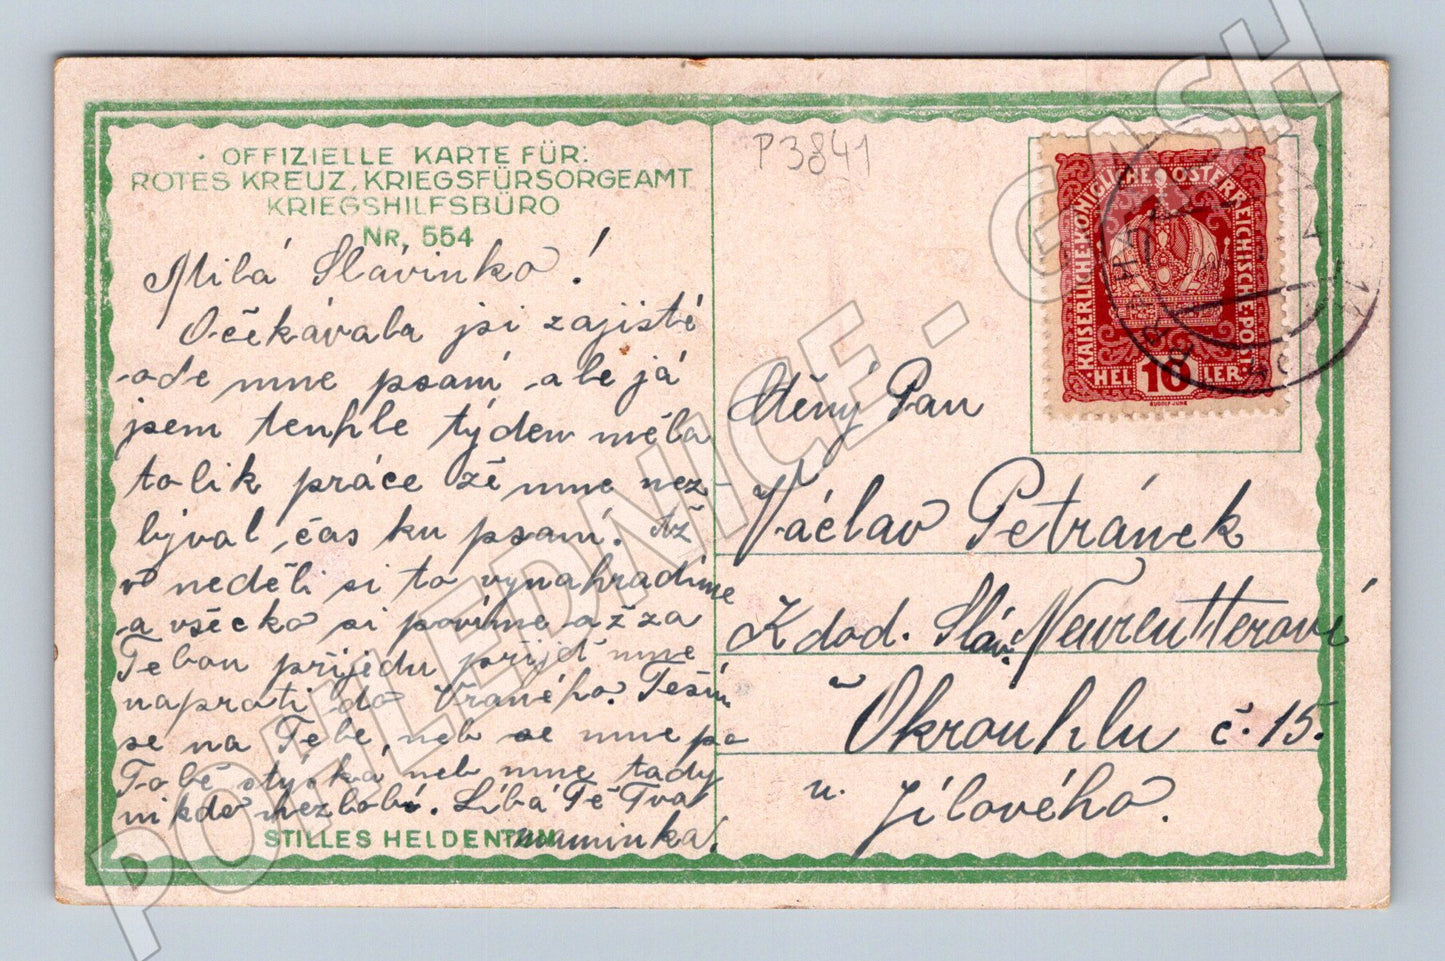 · OFFIZIELLE KARTE FÜR:
ROTES KREUZ, KRIEGSFÜRSORGEAMT
KRIEGSHILFSBÜRO
NR, 554
Milá Slávinko!
Očekávala jsi zajisté
ode mne psaní, ale já
jsem tenhle týden měla
tolik práce žě mne nez-
býval čas ku psaní. Až
v neděli si to vynahradíme
a všecko si povíme až za
Tebou přijedu přijď mne
naproti do Vraného. Těším
se na Tebe, neb se mne po
Tobě stýská neb mne tady
nikdo nezlobí. Líbá Tě Tvá
maminka!
STILLES HELDENTUM
P3841
KAISERLICHE·KÖNIGLICHE·ÖSTERREICHISCHE·POST·
·HELLER·
10
RUDOLF JUNK
Ctěný Pan
Václav Petránek
K dod. Sláv. Neureutterové
Okrouhlu č. 15.
u. Jílového.
POHLEDNICE - CASH